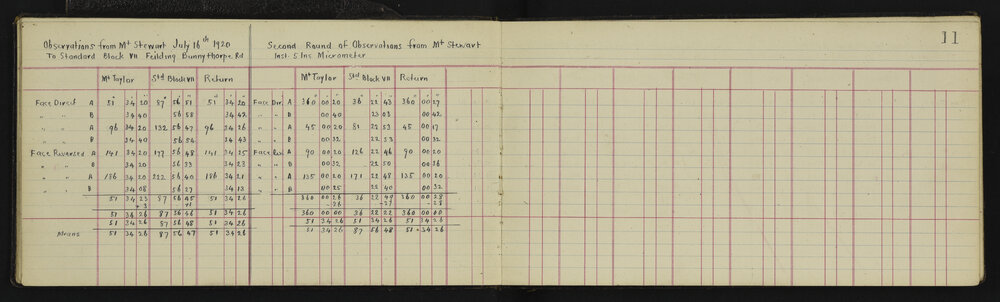 11
Observations from Mt Stewart July 16th 1920
To Standard Block VII Feilding Bunnythorpe Rd
Mt Taylor Std Block VII Return
Face Direct A 51 34 20 87 56 51 51 34 20
" " B 34 40 56 58 34 42
A 96 34 20 132 56 47 96 34 26
" " B 34 40 56 54 34 43
Face Reversed A 141 34 20 177 56 48 141 34 25
" " B 34 20 56 33 34 23
" " A 186 34 20 222 56 40 186 34 21
" " B 34 08 56 27 34 13
51 34 23 87 56 45 51 34 26
+3 +1
51 34 26 87 56 46 51 34 26
51 34 26 87 56 48 51 34 26
Means 51 34 26 87 56 47 51 34 26
Second Round of Observations from Mt Stewart
Inst. 5 Ins Micrometer
Mt Taylor Std Block VII Return
Face Dir. A 360 00 20 36 22 43 360 00 27
" " B 00 40 23 03 00 42
" " A 45 00 20 81 22 53 45 00 17
" " B 00 32 22 53 00 32
Face Rev. A 90 00 20 126 22 46 90 00 20
" " B 00 32 22 50 00 36
" " A 135 00 20 171 22 48 135 00 20
" " B 00 25 22 40 00 32
360 00 26 36 22 49 360 00 28
-26 -27 -28
360 00 00 36 22 22 360 00 00
51 34 26 51 34 26 51 34 26
51 34 26 87 56 48 51 34 26